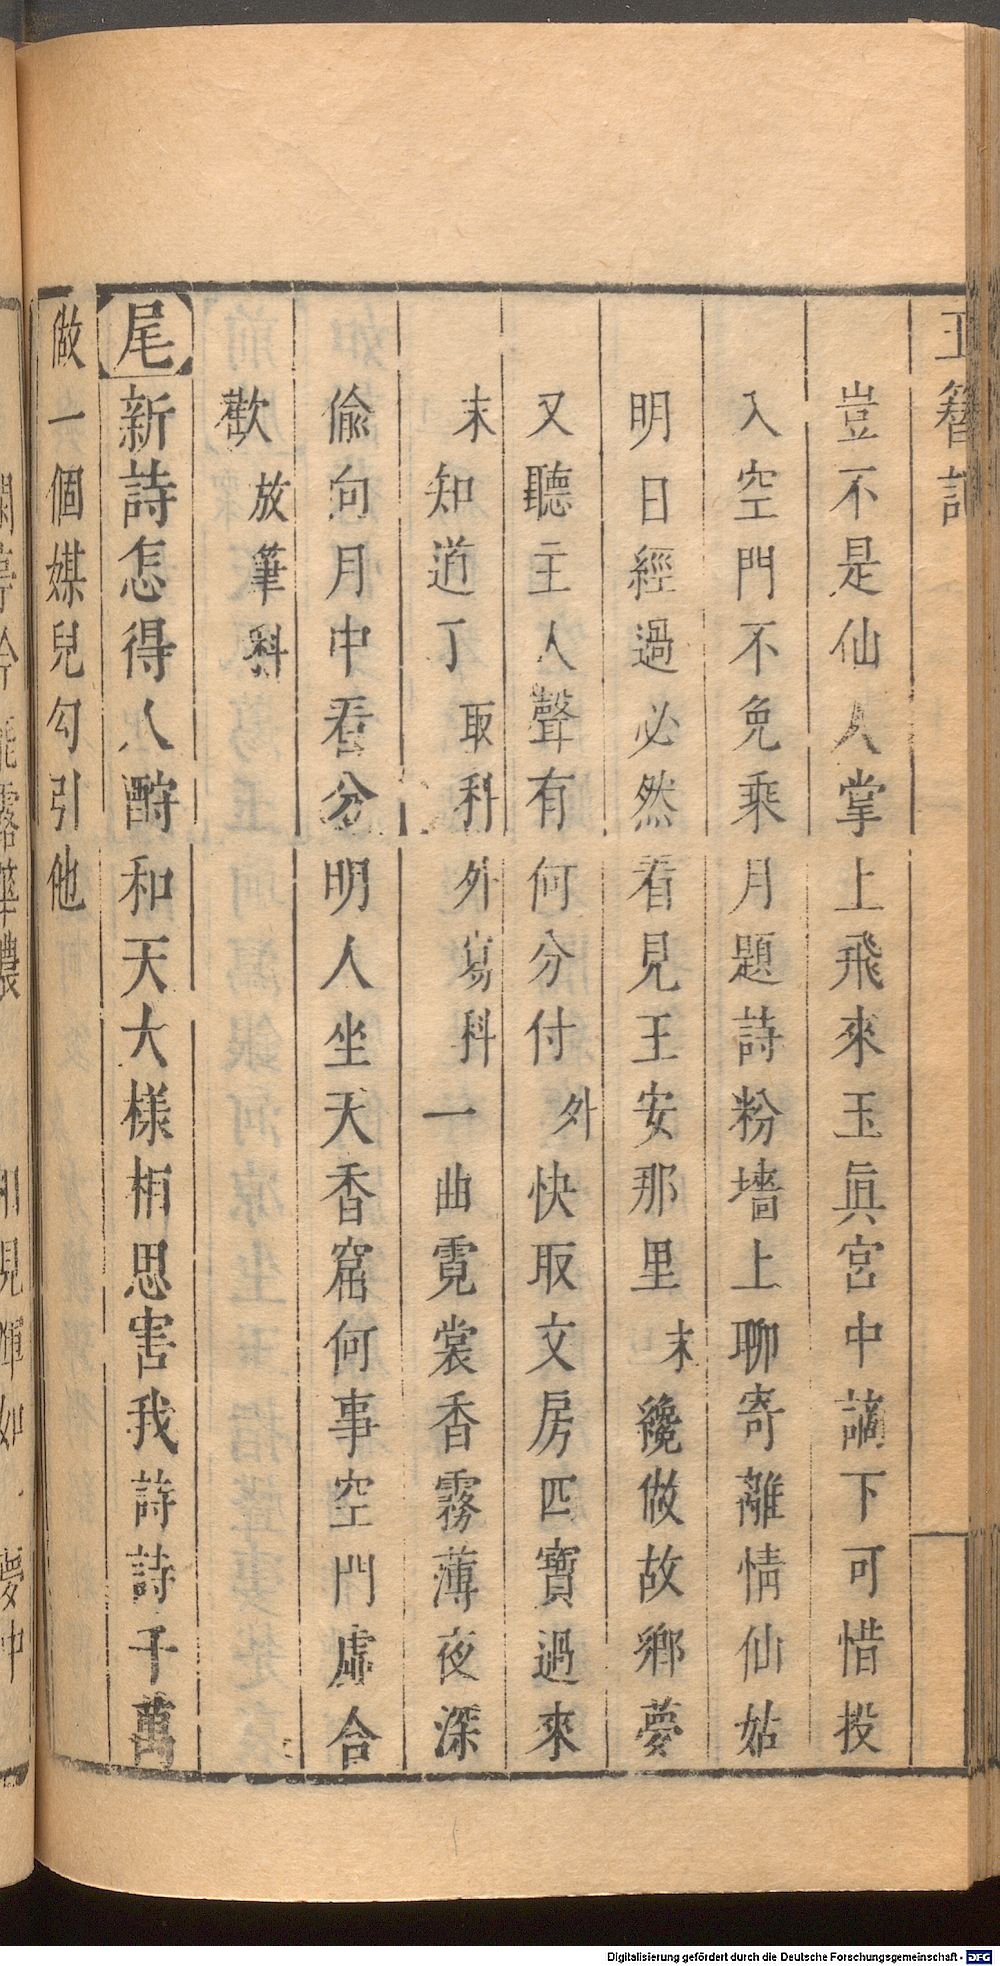 玉簪記
豈不是仙人掌上飛來玉眞宮中謫下可惜投
入空門不免乘月題詩粉墻上聊寄離情仙姑
明日經過必然看見王安那里末纔做故鄉夢
又聽主人聲有何分付外快取文房四寶過來
末知道丁取科外寫科一曲霓裳香霧薄夜深
偸向月中看分明人坐天香窟何事空門虛合
歡放筆科
尾新詩怎得人酧和天大樣相思害我詩詩千萬
做一個媒兒勾引他
Digitalisierung gefördert durch die Deutsche Forschungsgemeinschaft - DFG